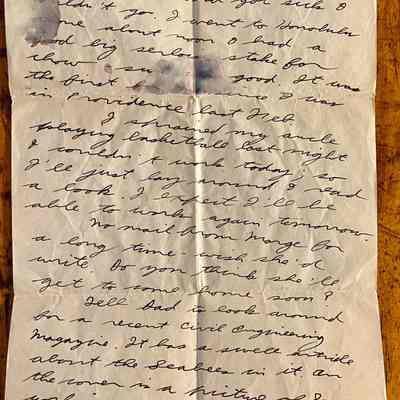 got sick I
ldn't go. I went to Honolulu
one about noon I had a
good big serloin stake for
chow su good. It was
the first since I was
in Providence last Feb.
I sprained my ancle
playing basketball last night
I couldn't work today, so
I'll just lay around & read
a look. I expect I'll be
able to work again tomorrow.
No mail from Marge for
a long time wish she'd
write. Do you think she'll
get to come home soon?
Tell Dad to look around
for a recent Civil Engineering
Magazine. It has a swell article
about the Seabees in it. On
the cover is a picture of